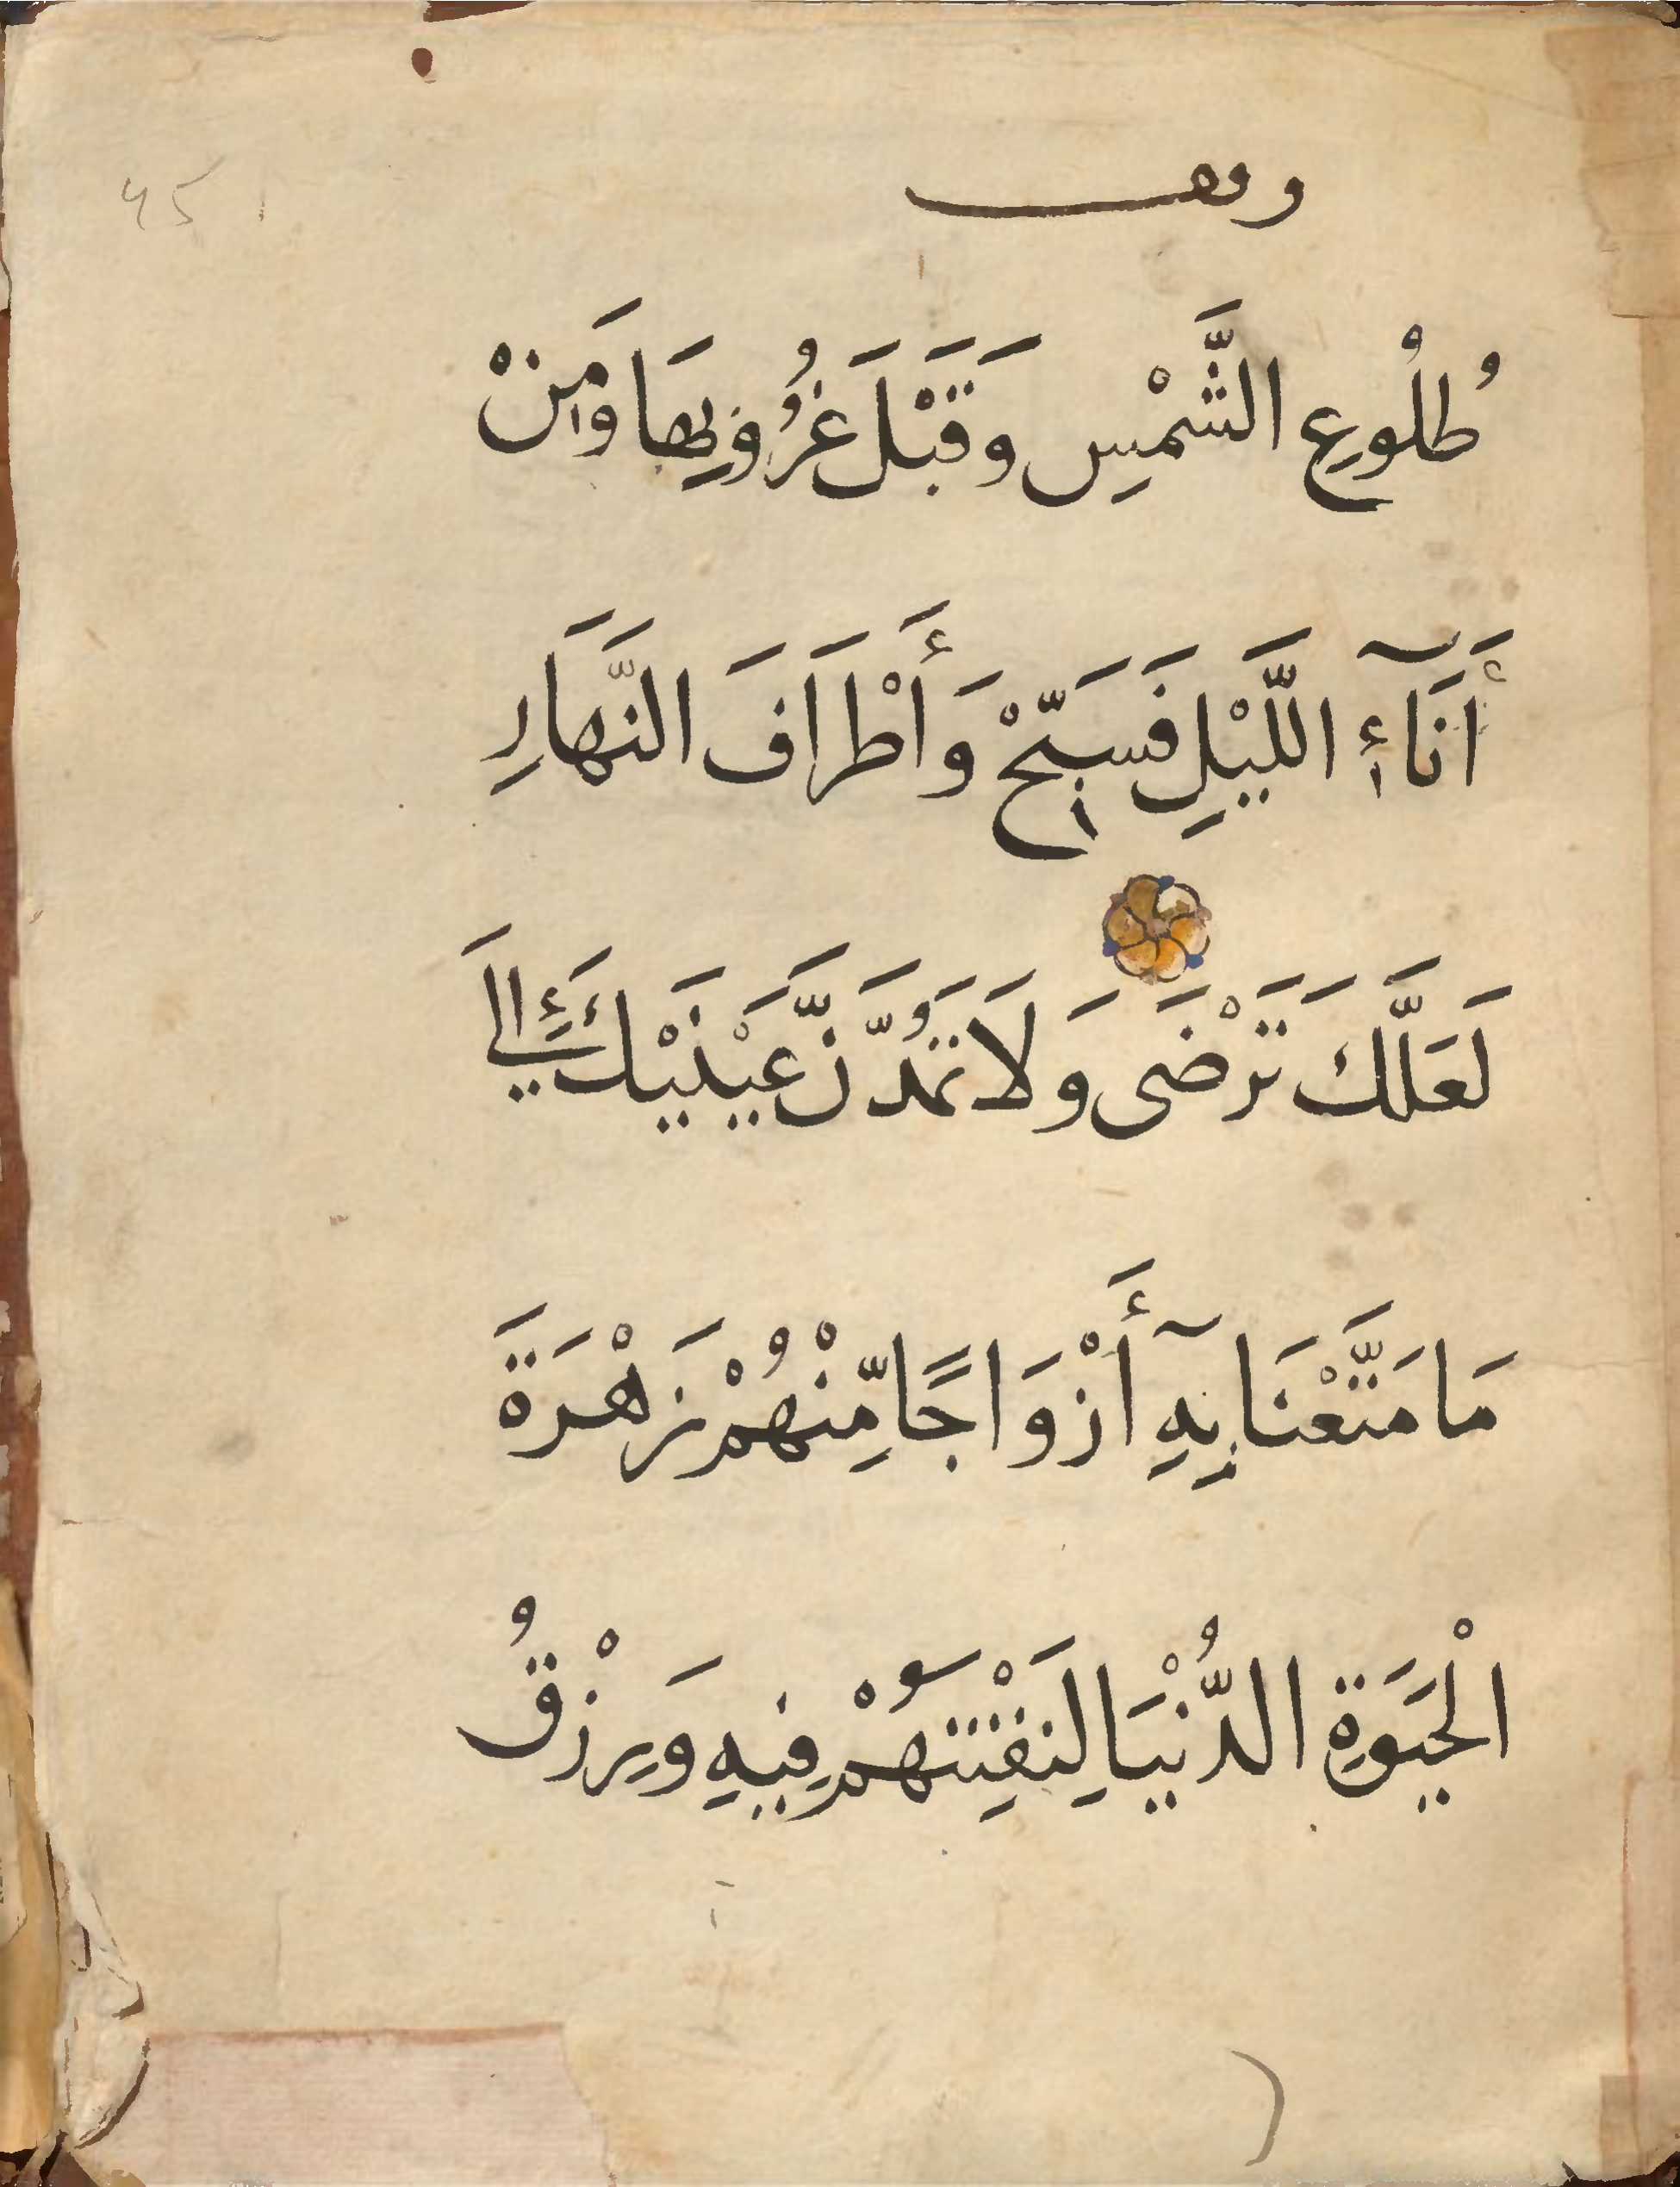 وقف
طُلُوعِ الشَّمْسِ وَقَبْلَ غُرُوبِهَا وَمِنْ
أَنَآءِ اللَّيْلِ فَسَبِّحْ وَأَطْرَافَ النَّهَارِ
لَعَلَّكَ تَرْضَى وَلَا تَمُدَّنَّ عَيْنَيْكَ إِلَى
مَا مَتَّعْنَا بِهِ أَزْوَاجًا مِّنْهُمْ زَهْرَةَ
الْحَيَوةِ الدُّنْيَا لِنَفْتِنَهُمْ فِيهِ وَرِزْقُ